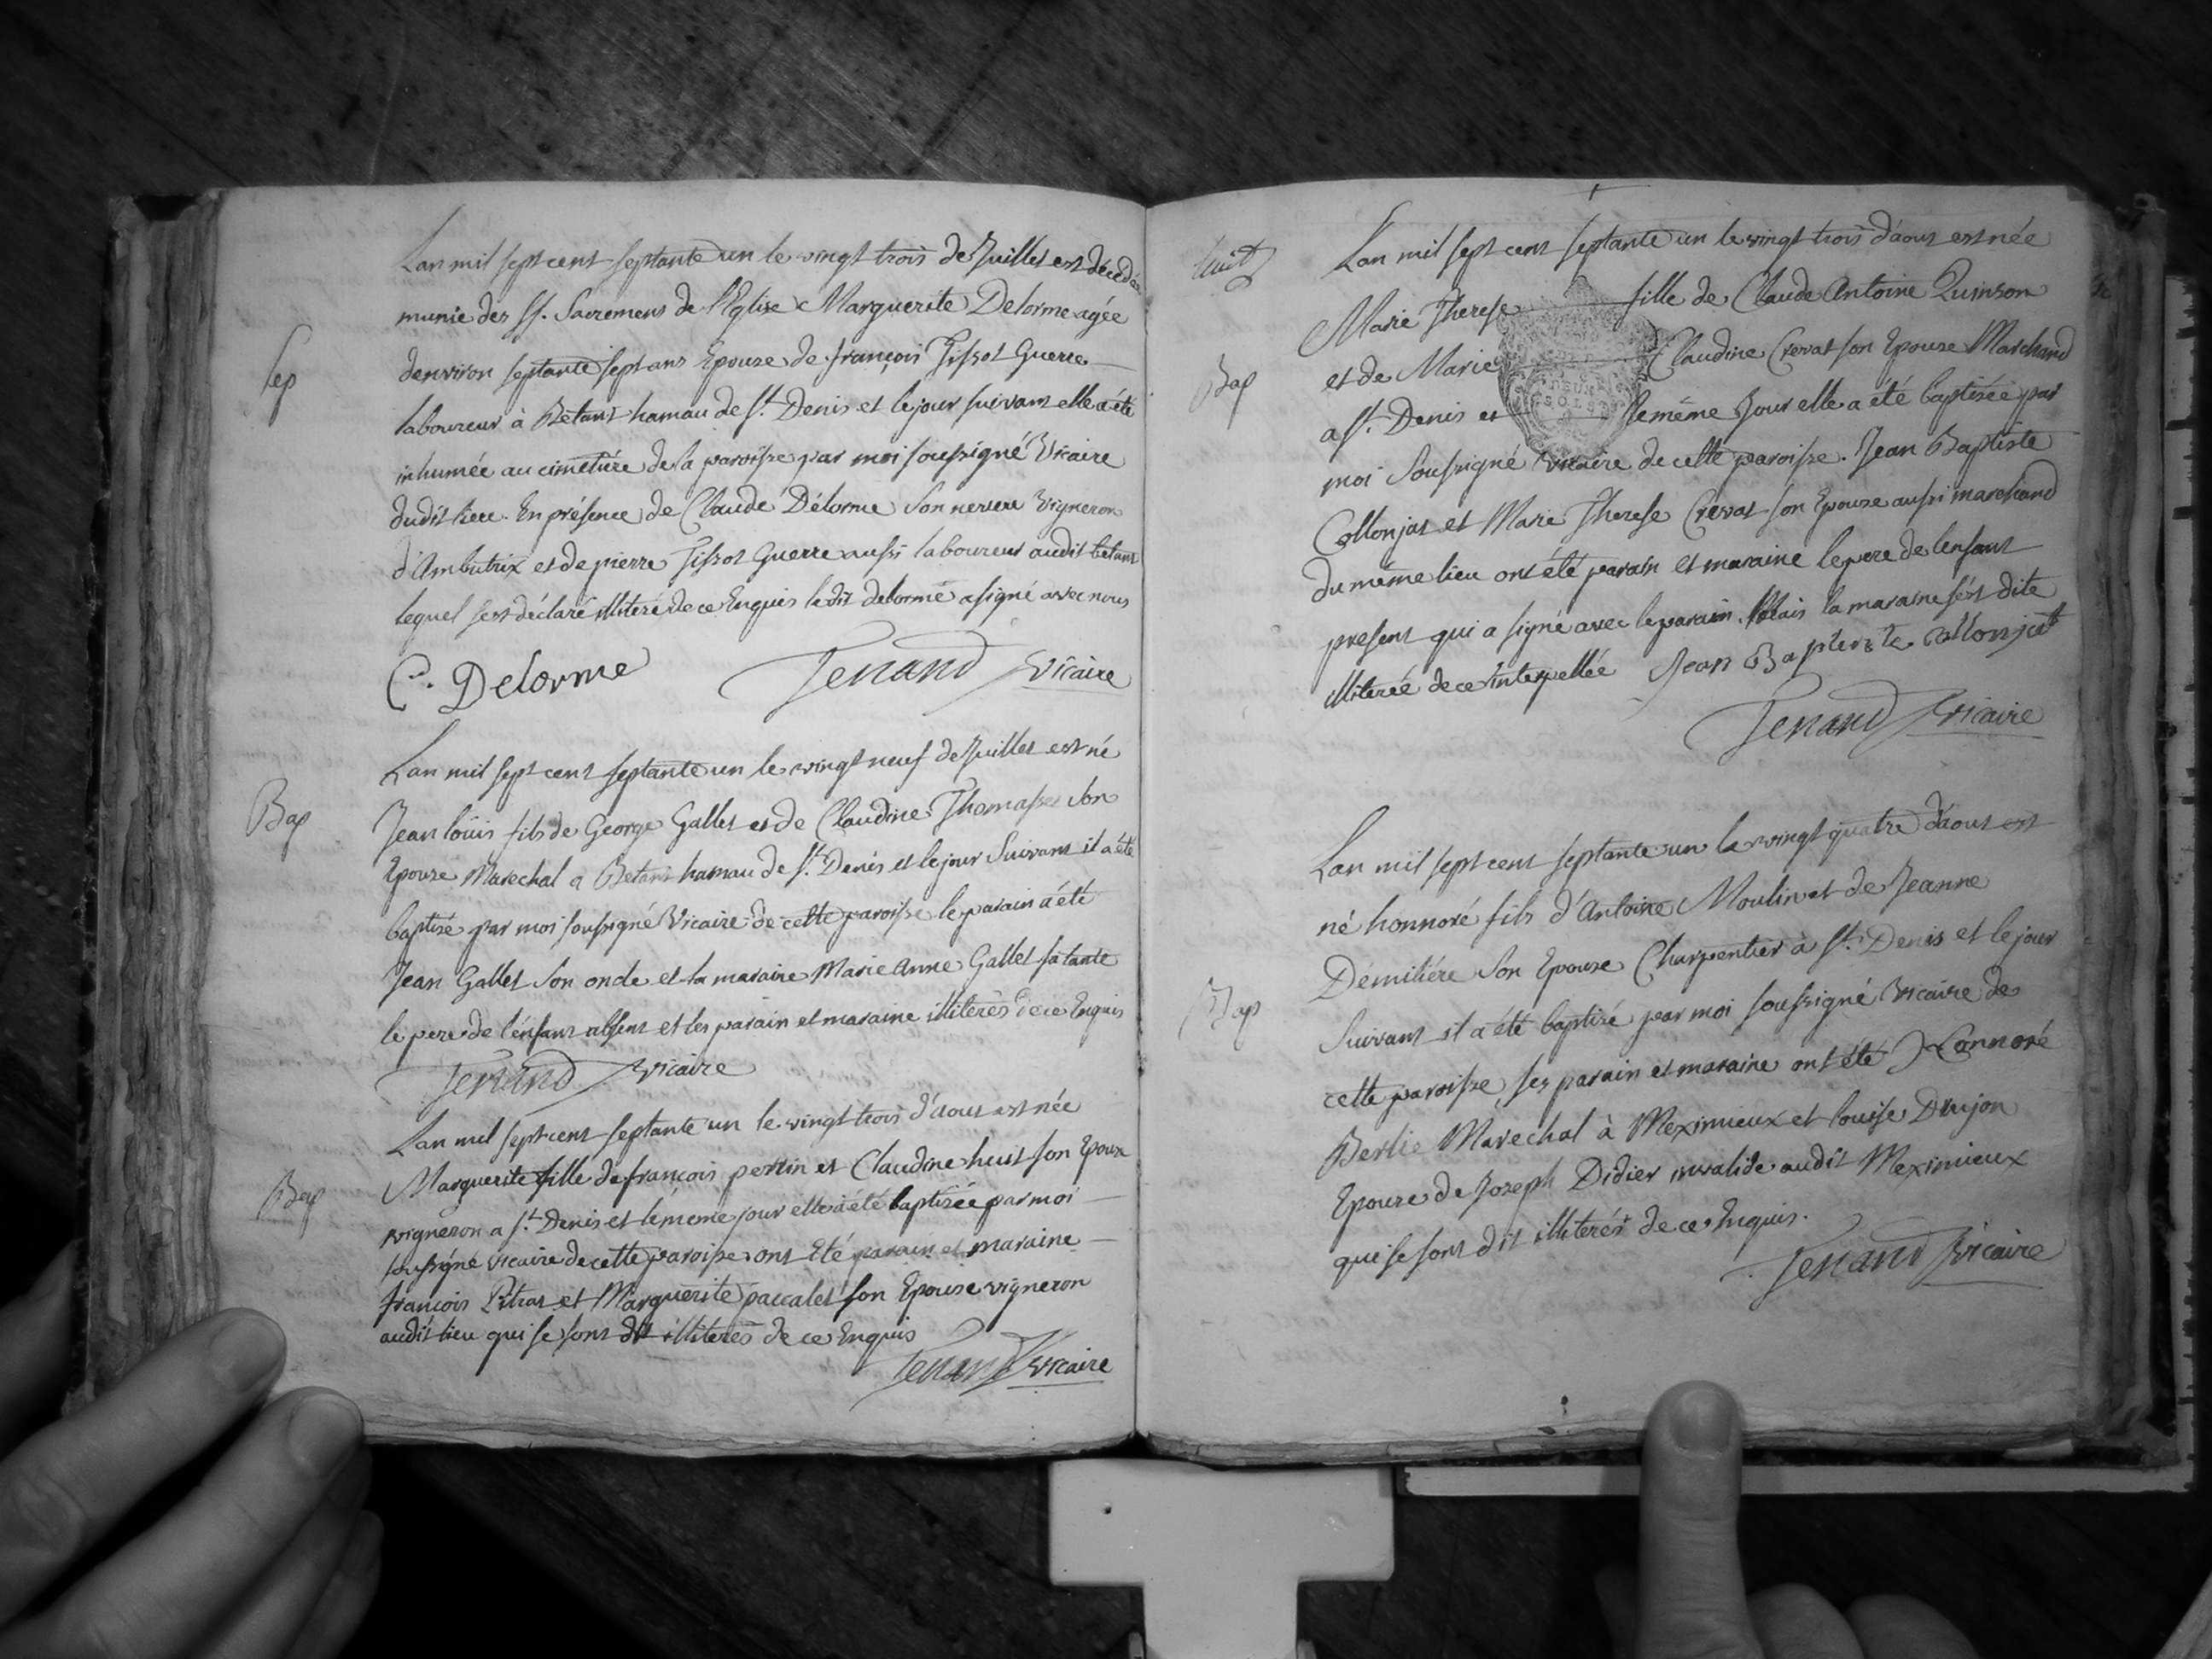 Lan mil sept cent septante un le vingt trois de Juillet est décedée
munie des SS. Sacremens de l'Eglise Marguerite Delorme agée
Sep
denviron septante sept ans Epouse de françois Tissot Guerre
laboureur à Betant hamau de St. Denis et le jour suivant elle a été
inhumée au cimetiére de sa paroisse par moi soussigné Vicaire
dudit lieu. En présence de Claude Délorme son neveu Vigneron
d'Ambutrix et de pierre Tissot Guerre aussi laboureur audit betant
lequel s'est déclaré illiteré de ce Enquis ledit delorme a signé avec nous
C. Delorme Tenand Vicaire
Lan mil sept cent septante un le vingt neuf de Juillet est né
Bap
Jean loüis fils de George Gallet et de Claudine Thomasse son
Epouse Marechal a Betant hamau de St. Denis et le jour suivant il a été
baptisé par moi soussigné Vicaire de cette paroisse le parain a été
Jean Gallet son oncle et la maraine Marie Anne Gallet sa tante
le pere de l'énfant absent et les parain et maraine illiterés de ce Enquis
Tenand Vicaire
Lan mil sept cent septante un le vingt trois d'aout est née
Bap
Marguerite fille de francois perrin et Claudine huit son Epouse
vigneron a St. Denis et le méme jour elle a été baptisée par moi
soussigné vicaire de cette paroisse ont Eté parain et maraine
francois Pitrat et Marguerite paccalet son Epouse vigneron
audit lieu qui se sont dit illiterés de ce Enquis
Tenand Vicaire
huit
Lan mil sept cent septante un le vingt trois d'aout est née
Marie Therese fille de Claude Antoine Quinson
Bap
et de Marie Claudine Crevat son Epouse Marchand
a St. Denis et le même Jour elle a été baptisée par
moi Soussigné Vicaire de cette paroisse. Jean Baptiste
Collonjat et Marie Therese Crevat son Epouse aussi marchand
du même lieu ont été parain et maraine le pere de lenfant
present qui a signé avec le parain. Mais la maraine s'ést dite
illiterée de ce interpellée Jean Baptiste Collonjat
Tenand Vicaire
Lan mil sept cent séptante un le vingt quatre d'aout est
né honnoré fils d'Antoine Moulin et de Jeanne
Démiliére son Epouse Charpentier à St. Denis et le jour
Bap
Suivant il a été baptisé par moi soussigné Vicaire de
cette paroisse ses parain et maraine ont été Honnoré
Berlie Maréchal à Meximieux et louise Drujon
Epouse de Joseph Didier invalide audit Meximieux
qui se sont dit illiterés de ce Enquis.
Tenand Vicaire